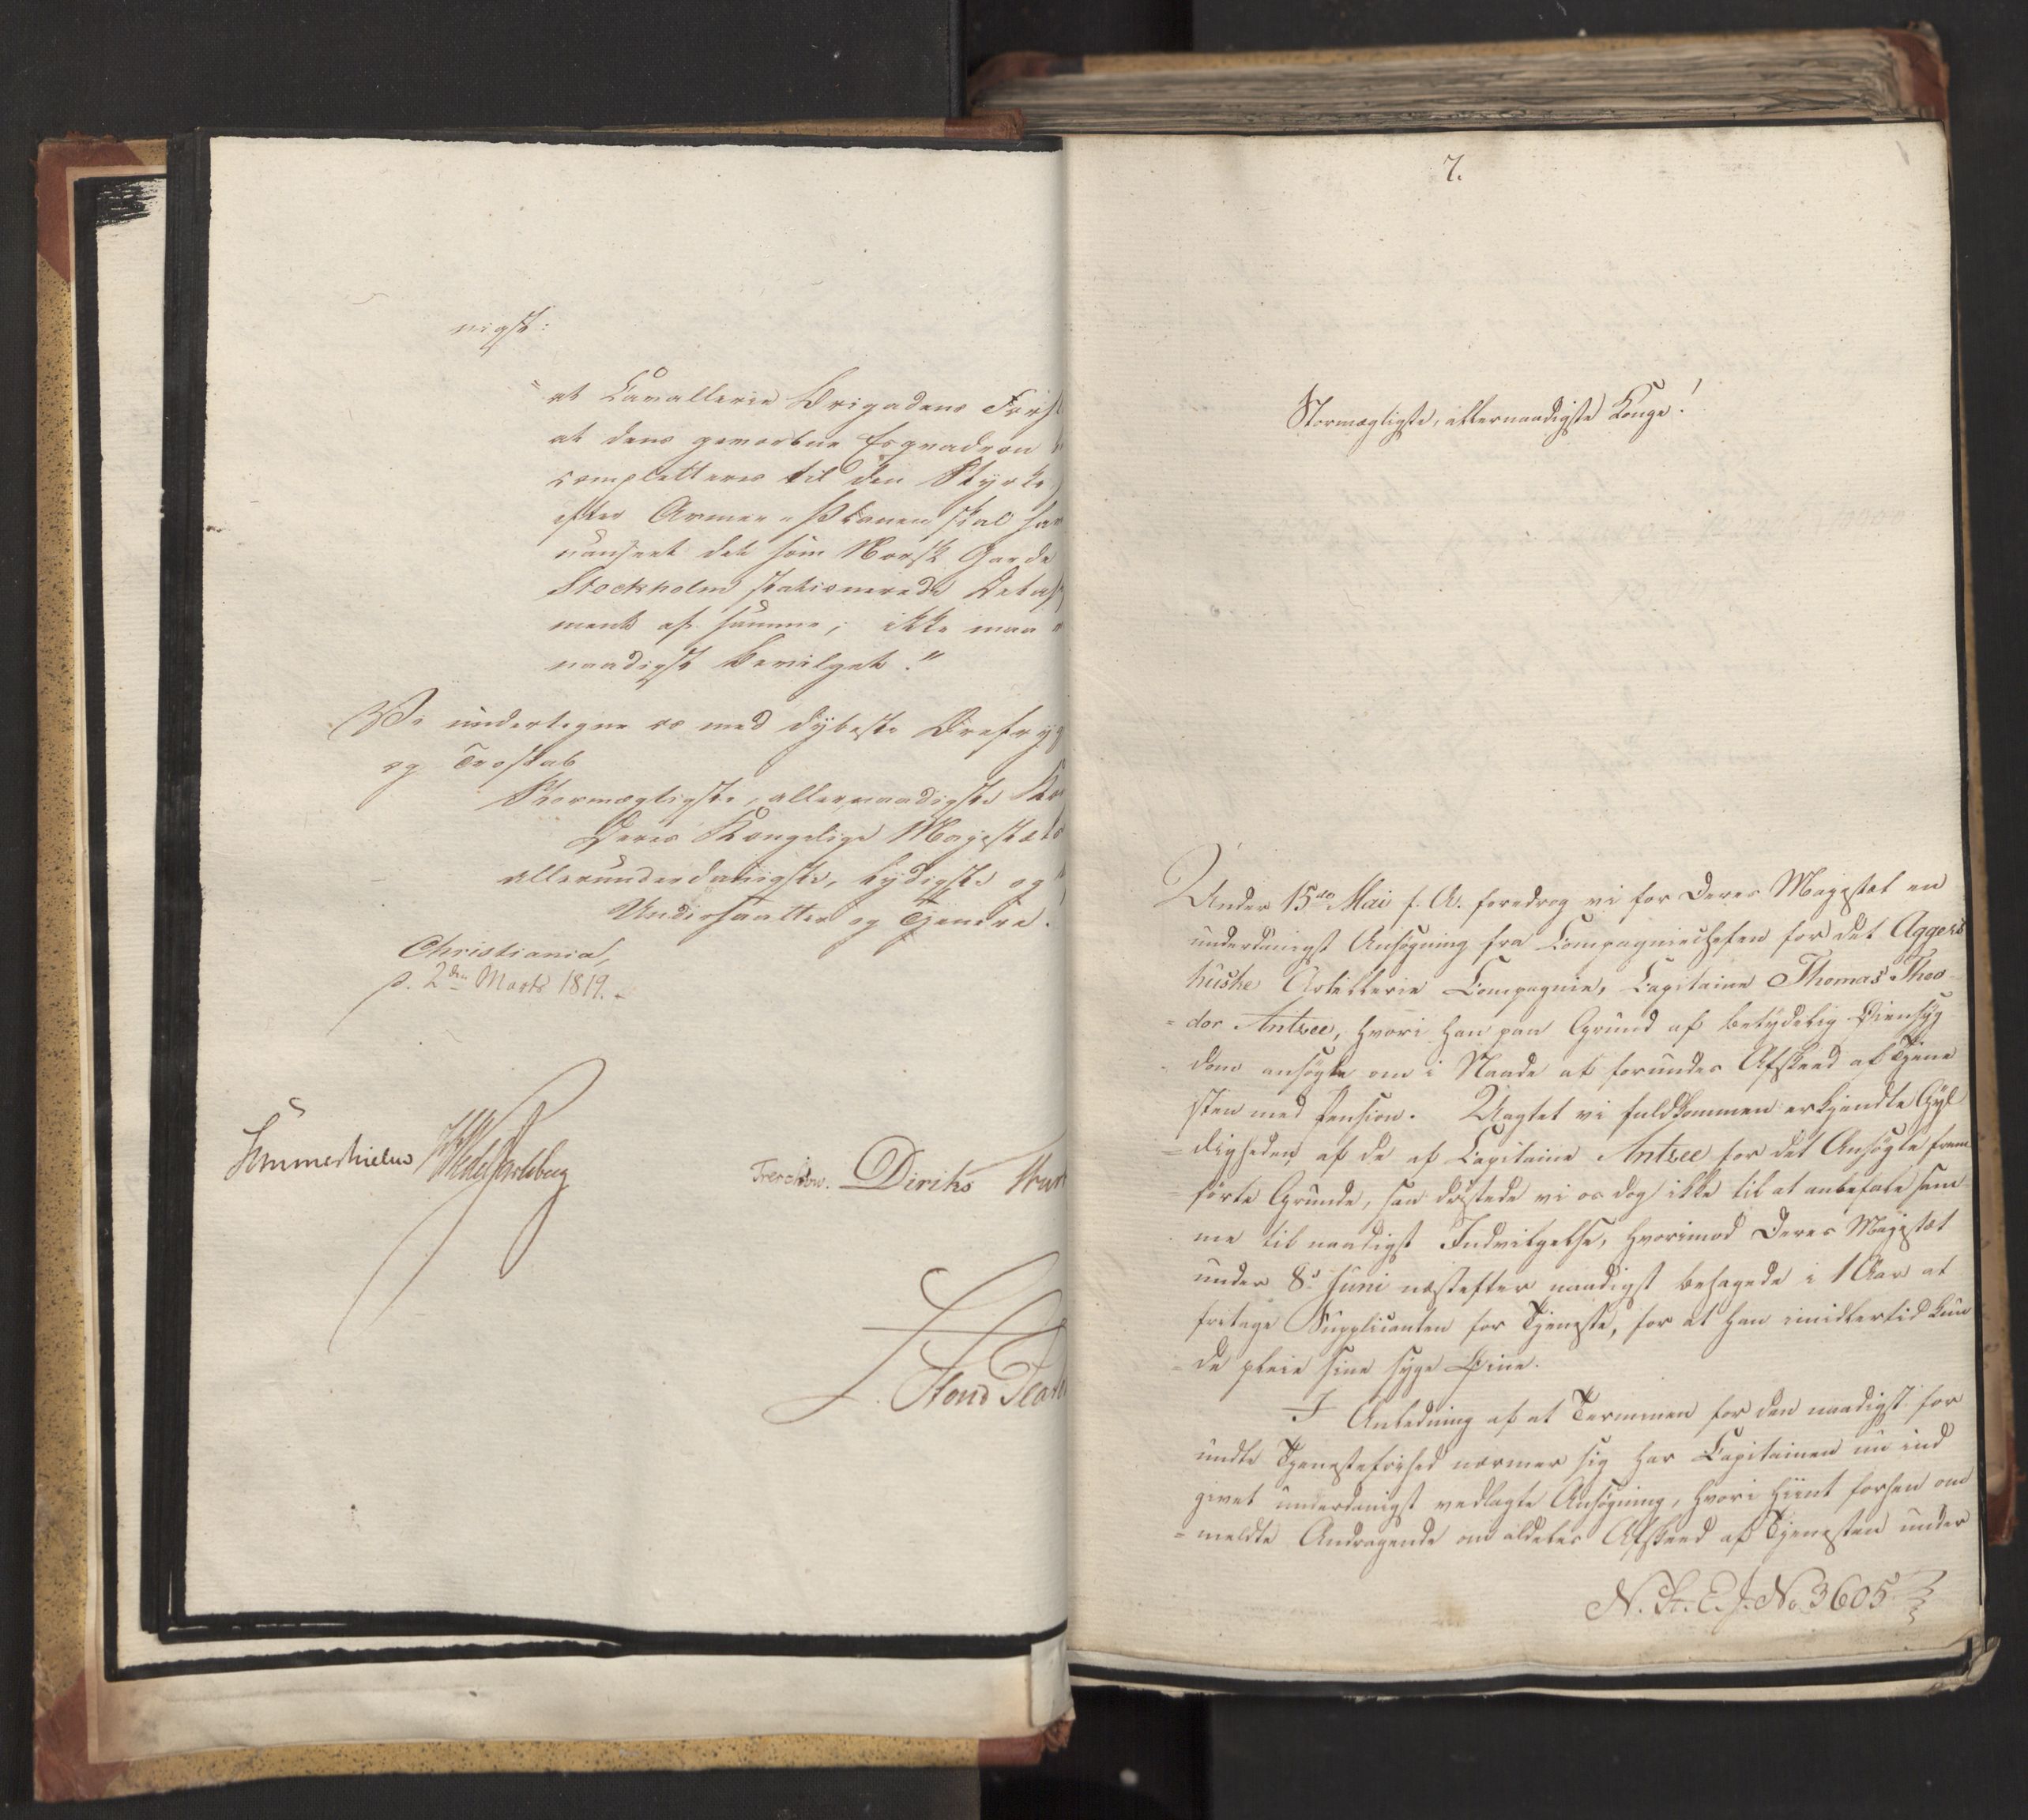 nigst:
"at Cavallerie Brigadens Forsl
at dens gevorbne Esqvadron
completteres til den Styrke
efter Armee-Planen skal ha
uanseet det som Norsk Garde
Stockholm stationerede Detas
ment af samme, ikke maa
naadigst bevilget."
Vi undertegne os med dybeste Ærefryg
og Troskab
Stormægtigste, allernaadigste Ko
Deres Kongelige Majestæts
allerunderdanigste, lydigste og
Undersaatter og Tjenere.
Christiania,
d. 2den Marts 1819.
Sommerhielm Wedel Jarlsberg Treschow. Diriks
7.
Stormægtigste, allernaadigste Konge!
Under 15de Mai f. A. foredrog vi for Deres Majestæt en
underdanigst Ansøgning fra Compagniechefen for det Aggers
huske Artellerie Compagnie, Capitaine Thomas Theo
=dor Antzee, hvori han paa Grund af betydelig Øiensyg
dom ansøgte om i Naade at forundes Afskeed af Tjene
sten med Pension. Uagtet vi fuldkommen erkjendte Gyl
=digheden af de af Capitaine Antzee for det Ansøgte frem
førte Grunde, saa dristede vi os dog ikke til at anbefale sam
me til naadigst Indvilgelse, hvorimod Deres Majestæt
under 8de Juni næstefter naadigst behagede i 1 Aar at
fritage Supplicanten for Tjeneste, for at han imidlertid kun
=de pleie sine syge Øine.
I Anledning af at Terminen for den naadigst for
undte Tjenestefrihed nærmer sig har Capitainen nu ind
givet underdanigst vedlagte Ansøgning, hvori hiint forhen om
=meldte Andragende om aldeles Afskeed af Tjenesten under
N. St. E. J. No 3605